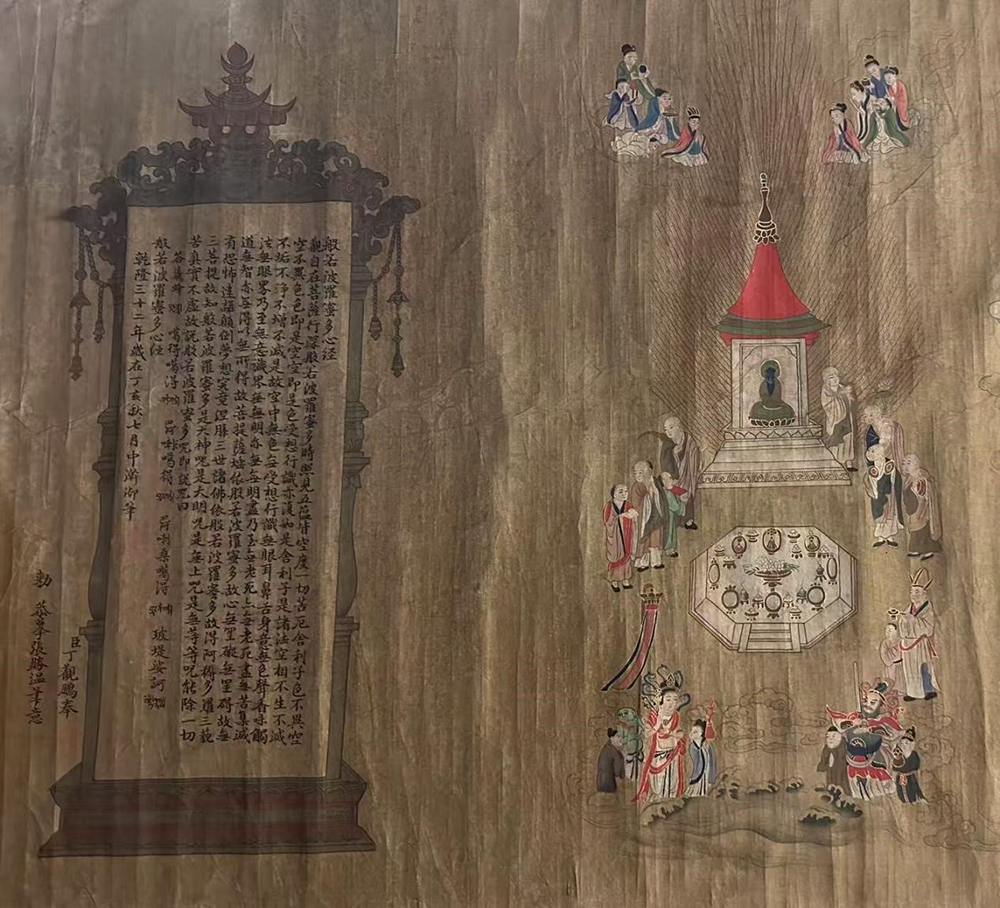 般若波羅蜜多心經
觀自在菩薩行深般若波羅蜜多時照見五蘊皆空度一切苦厄舍利子色不異空
空不異色色即是空空即是色受想行識亦復如是舍利子是諸法空相不生不滅
不垢不淨不增不減是故空中無色無受想行識無眼耳鼻舌身意無色聲香味觸
法無眼界乃至無意識界無無明亦無無明盡乃至無老死亦無老死盡無苦集滅
道無智亦無得以無所得故菩提薩埵依般若波羅蜜多故心無罣礙無罣碍故無
有恐怖遠離顛倒夢想究竟涅槃三世諸佛依般若波羅蜜多故得阿耨多羅三藐
三菩提故知般若波羅蜜多是大神呪是大明呪是無上呪是無等等呪能除一切
苦真實不虛故說般若波羅蜜多呪即說呪曰
噶得噶得 噶得 桑噶得 玻堤娑訶
般若波羅蜜多心經
乾隆三十二年歲在丁亥秋七月中澣御筆
臣丁觀鵬奉
勅 恭摹張勝溫筆意